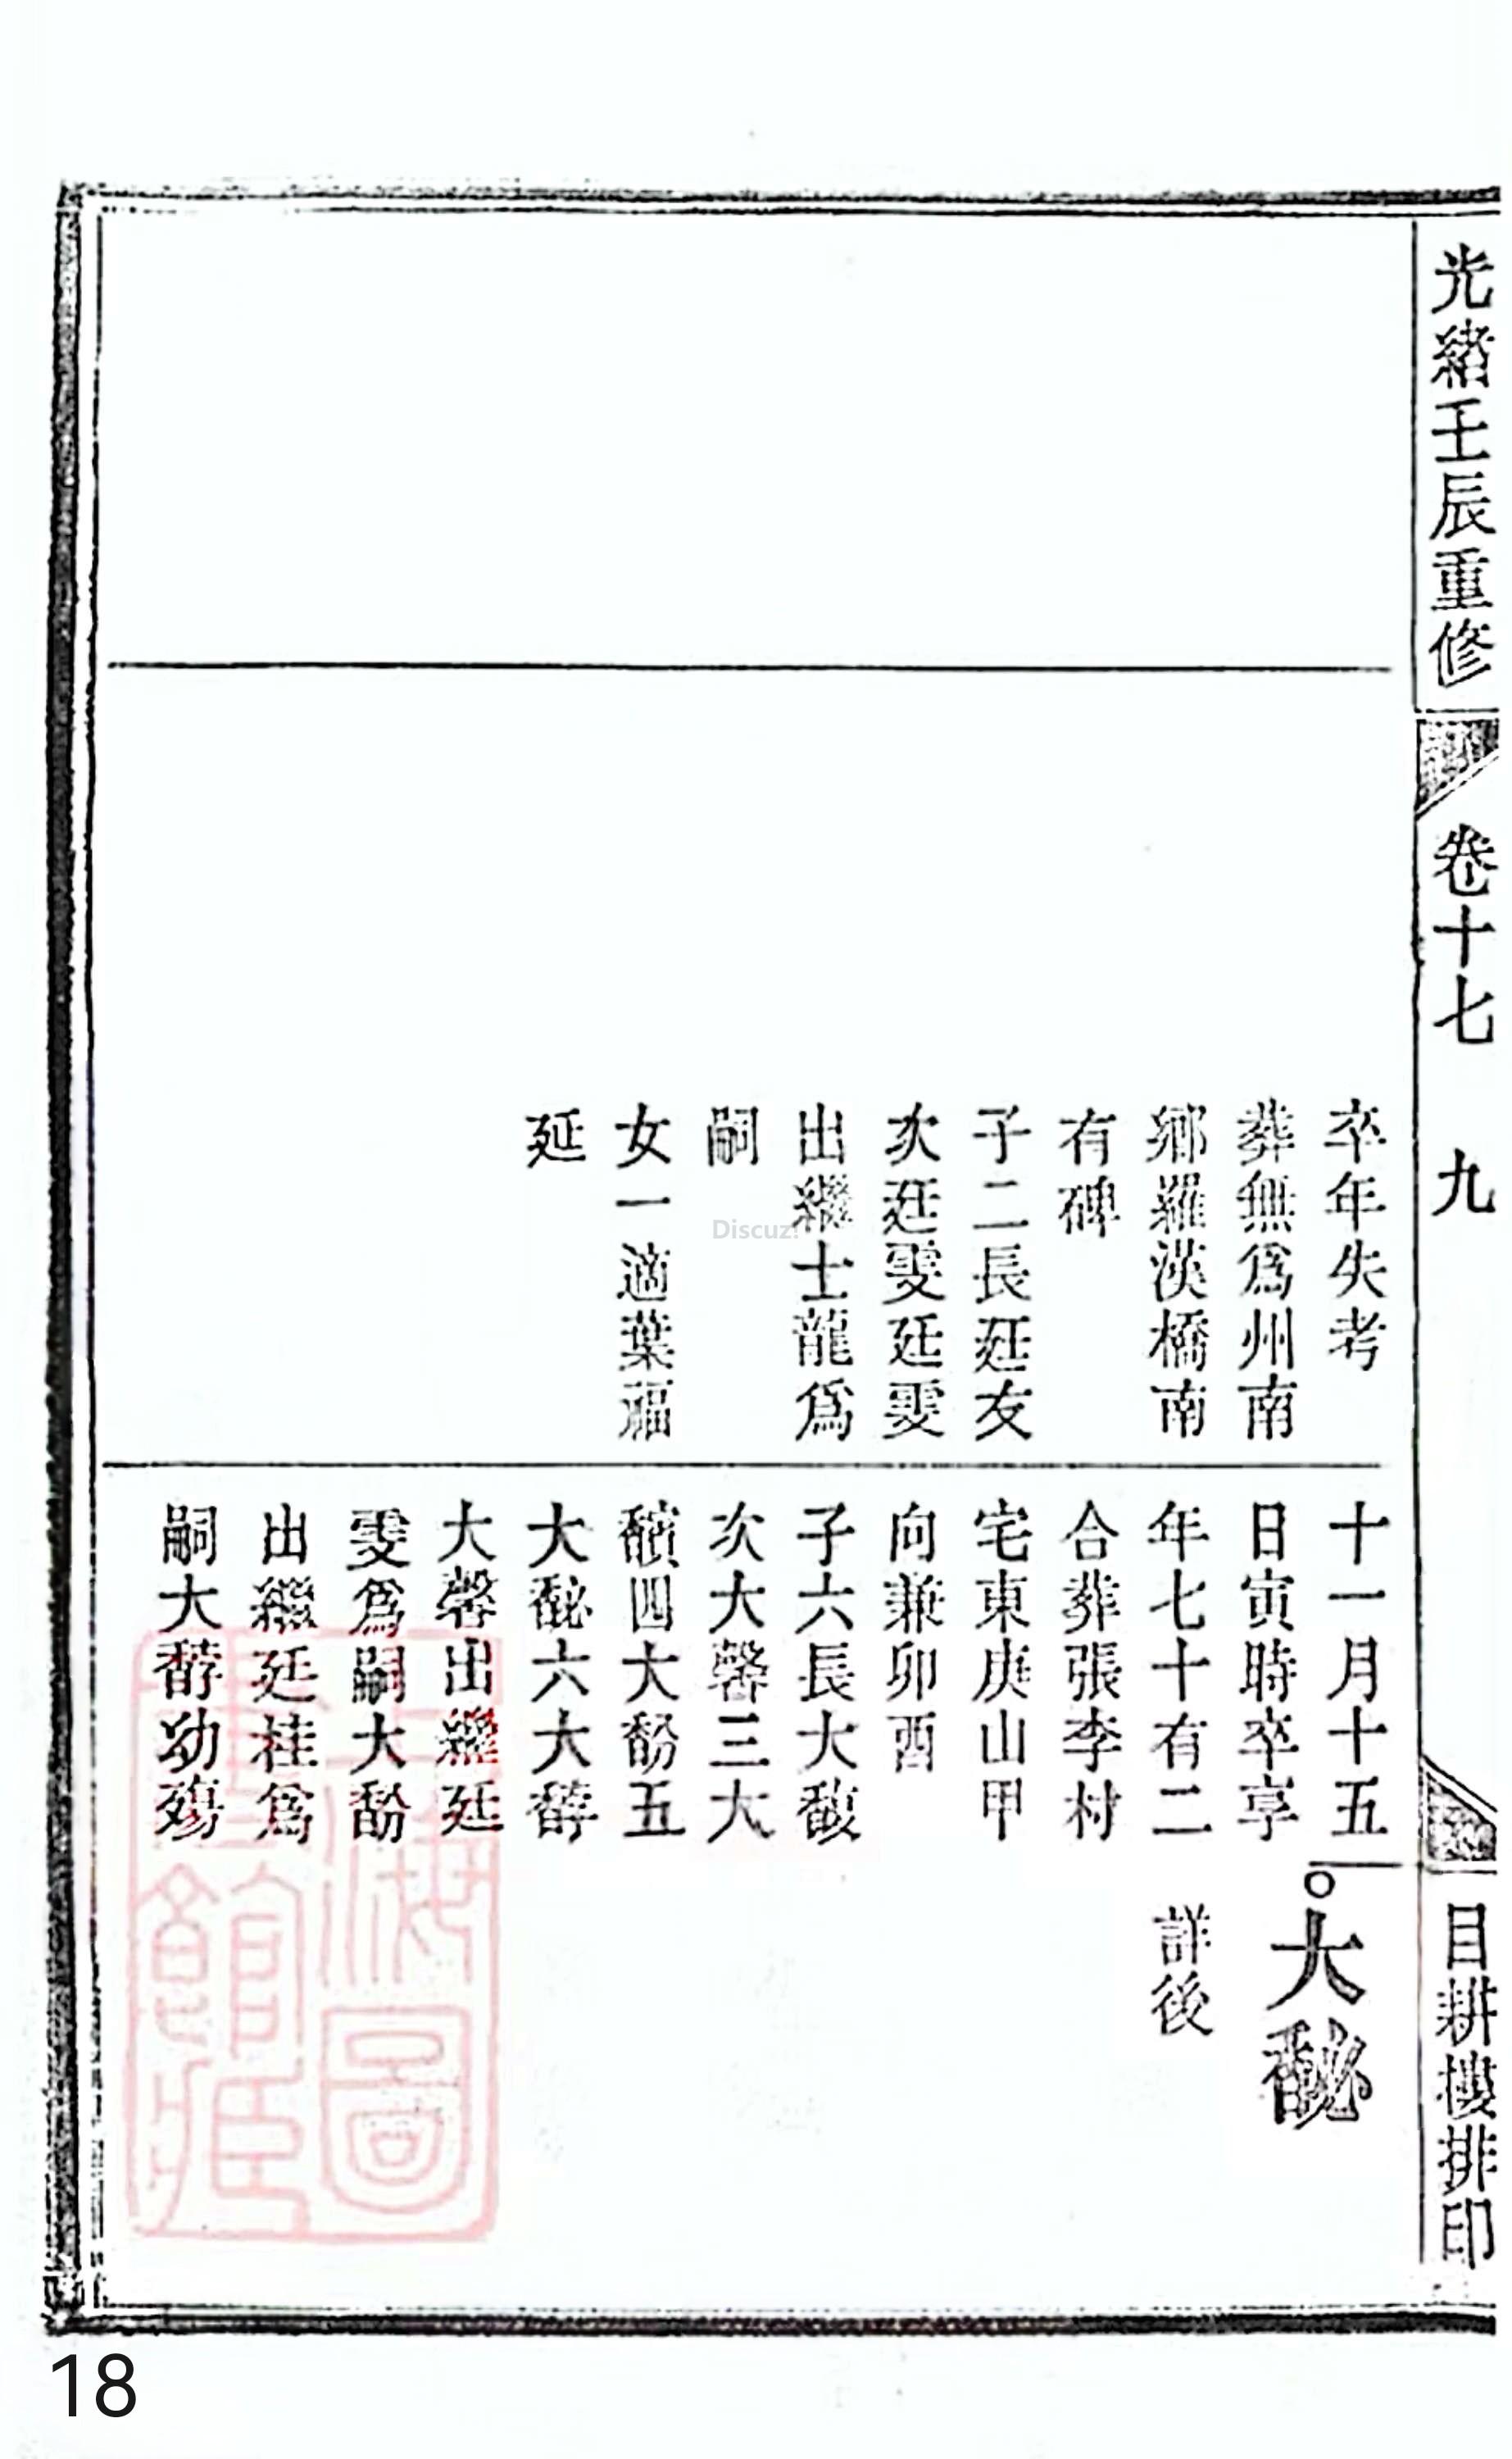 光緒壬辰重修
卷十七
九
目耕樓排印
卒年失考
葬無為州南
鄉羅漢橋南
有碑
子二長廷友
次廷雯廷雯
出繼士龍為
嗣
女一適葉福
延
十一月十五
日寅時卒享
年七十有二
合葬張李村
宅東庚山甲
向兼卯酉
子六長大馥
次大馨三大
馪四大馚五
大馝六大馞
大馨出繼廷
雯為嗣大馚
出繼廷桂為
嗣大馞幼殤
大馝
詳後
上海圖書館藏
Discuz!
18